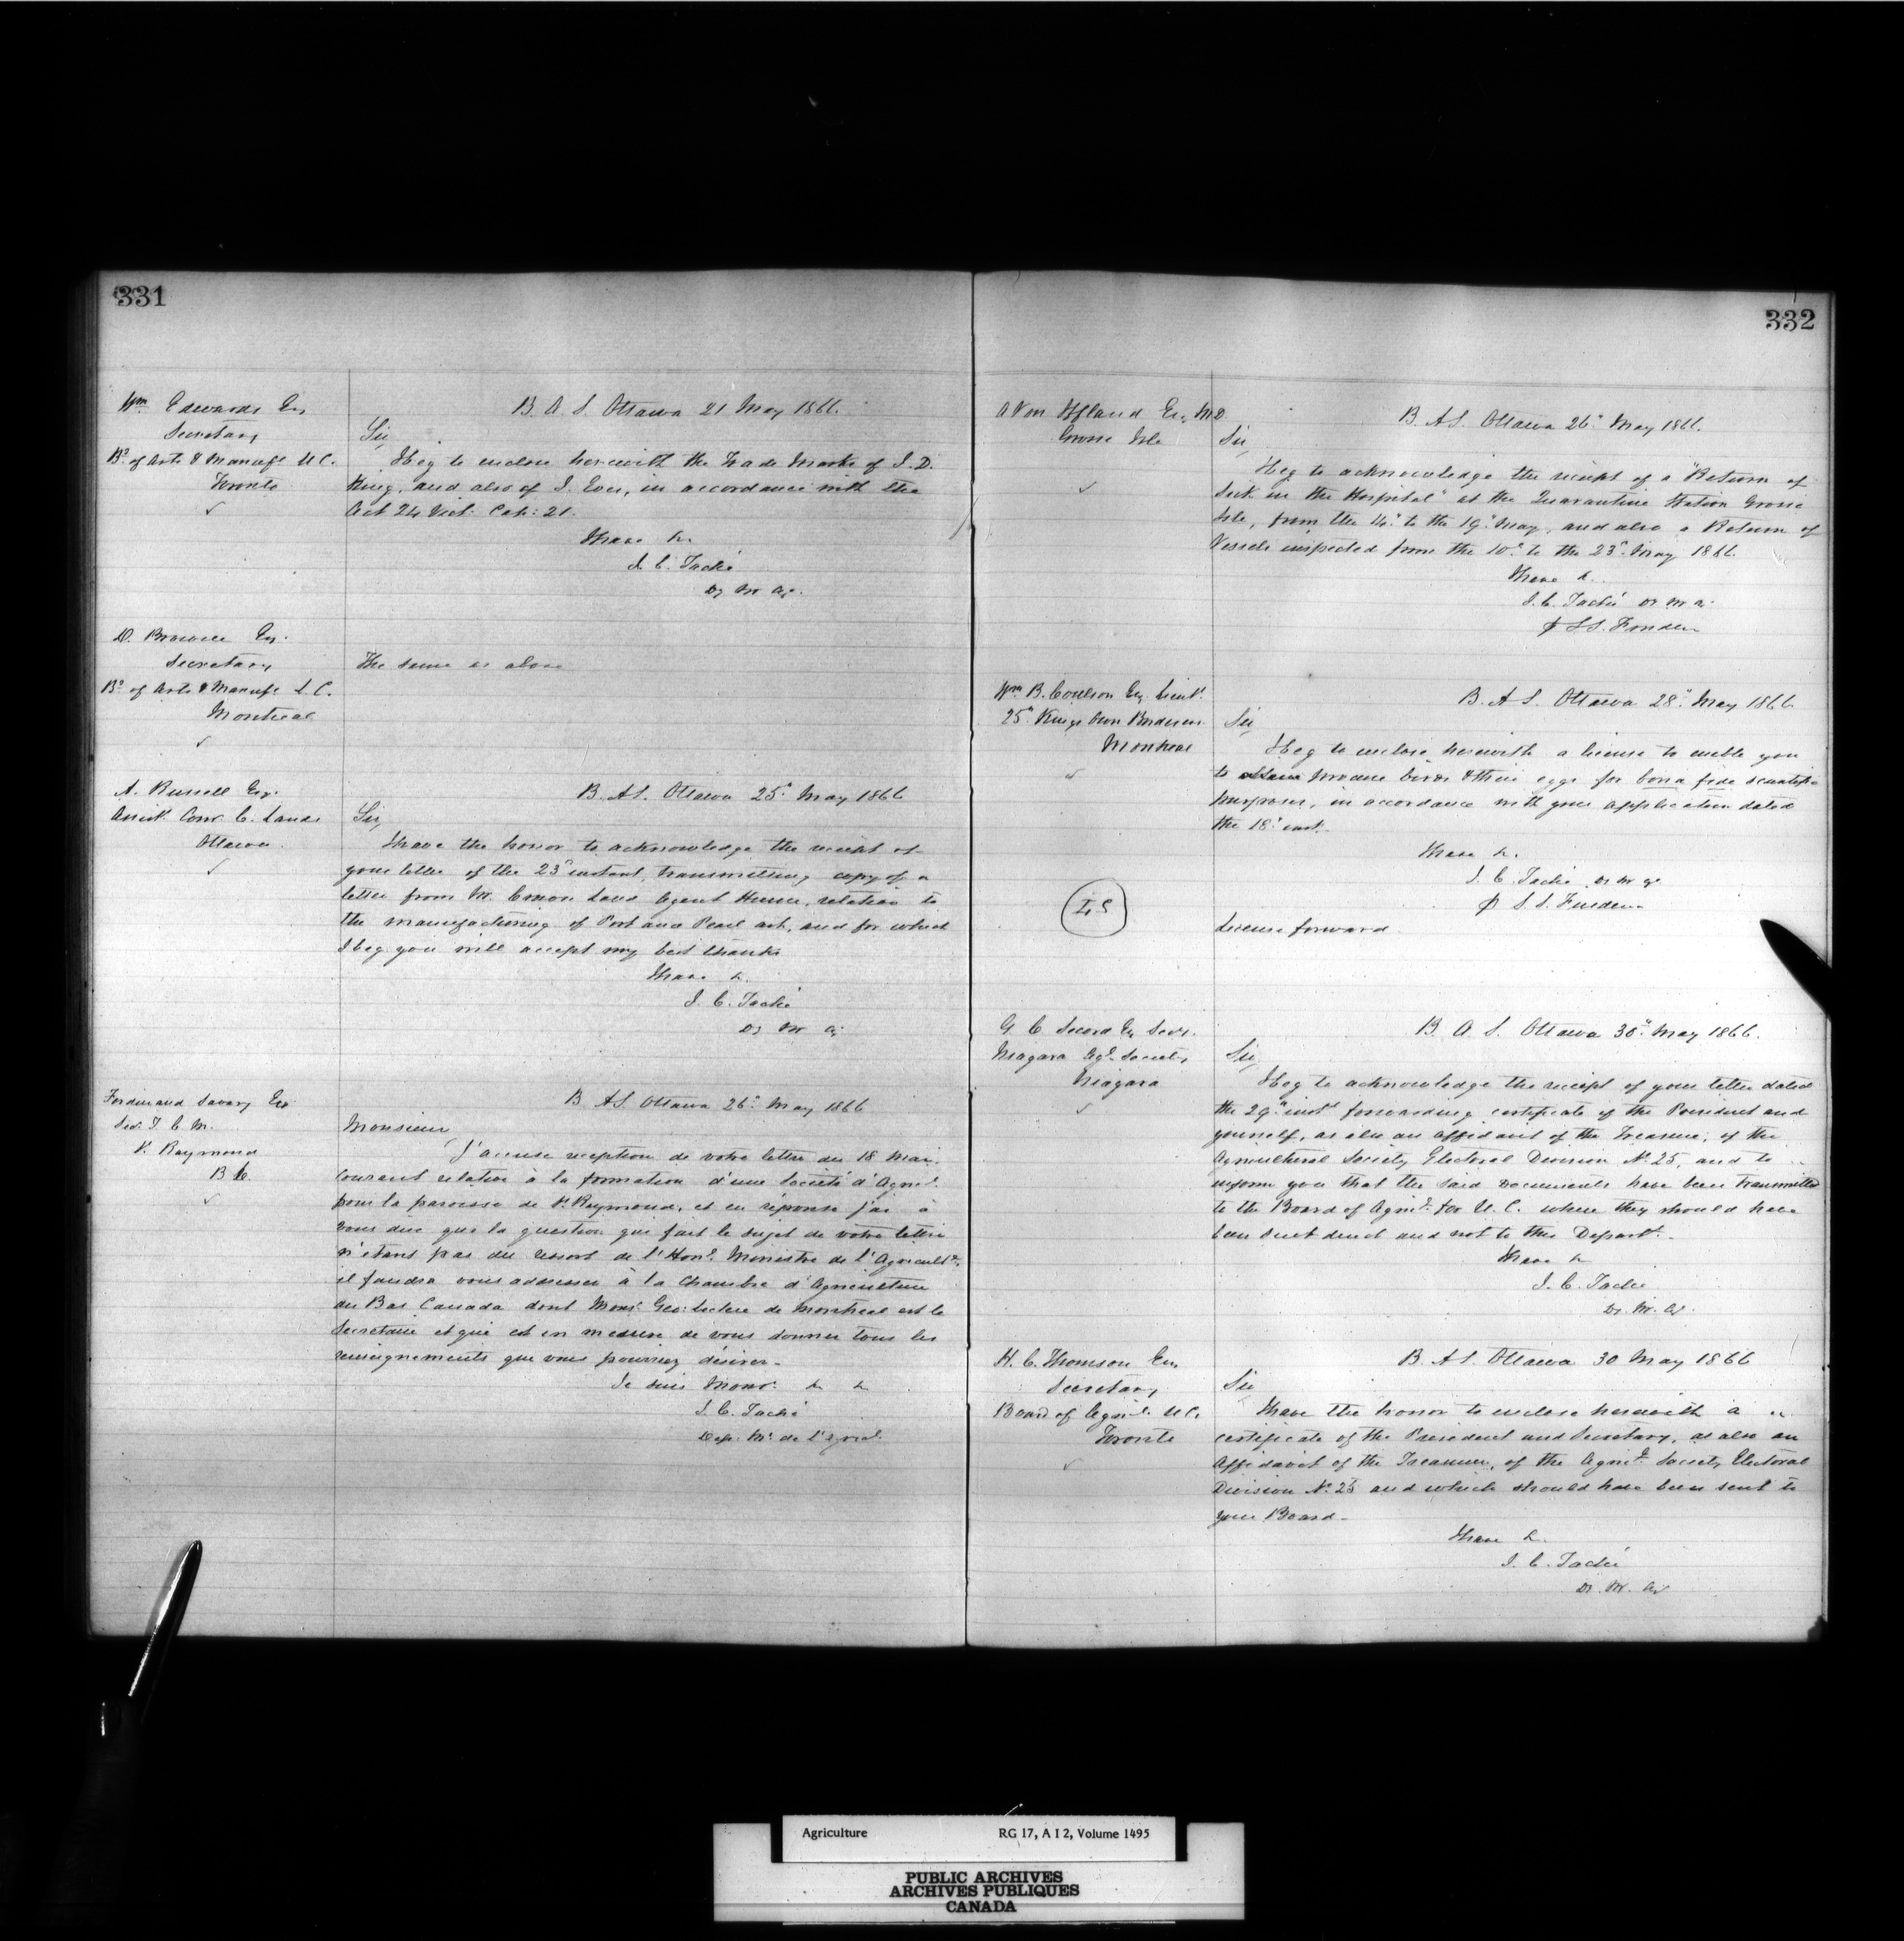 331
Wm Edwards Esq
Secretary
Bd of Arts & Manufs U.C.
Toronto
B. A. S. Ottawa 21 May 1866.
Sir,
I beg to enclose herewith the Trade Marks of J. D.
King, and also of I. in accordance with the
Act 24 Vict: Cap: 21.
I have &c
J. C. Taché
Dy M Ag.
D. Browne Esq.
Secretary
Bd of Arts & Manufs L.C.
Montreal
The same as above
A. Russell Esq.
Assist. Comr. C. Lands
Ottawa
B. A S. Ottawa 25th May 1866
Sir,
I have the honor to acknowledge the receipt of
your letter of the 23d instant, transmitting copy of a
letter from Mr. Land Agent relative to
the manufacturing of Pot and Pearl ash, and for which
I beg you will accept my best thanks
I have &c.
J. C. Taché
Dy M Ag.
Ferdinand Savary Esq
Sec. T. C. M.
St. Raymond
B C.
B A S. Ottawa 26th May 1866
Monsieur,
J'accuse reception de votre lettre du 18 Mai
courant relative à la formation d'une Société d'Agricl.
pour la paroisse de St. Raymond, et en réponse j'ai à
vous dire que la question qui fait le sujet de votre lettre
n'étant pas du ressort de l'Honl. Ministre de l'Agricultre.
il faudra vous addresser à la Chambre d'Agriculture
du Bas Canada dont Monsr. Geo: Leclere de Montreal est le
Secretaire et qui est en mesure de vous donner tous les
renseignements que vous pourriez désirer.
Je suis Monsr. &c &c
J. C. Taché
Dep. Mr. de l'Agricl.
332
A Von Iffland Esq. M.D
Grosse Isle
B. A S. Ottawa 26th May 1866.
Sir,
I beg to acknowledge the receipt of a "Return of
Sick in the Hospital" at the Quarantine Station Grosse
Isle, from the 14th to the 19th May, and also a Return of
Vessels inspected from the 10th to the 23d May 1866.
I have &c.
J. C. Taché Dy M A.
S S.
Wm B. Coulson Esq Lieut.
25th Kings Own Borderers
Montreal
B. A S. Ottawa 28th May 1866
Sir,
I beg to enclose herewith a license to enable you
to obtain procure birds & their eggs for bona fide scientific
purposes, in accordance with your application dated
the 18th inst.
I have &c.
J. C. Taché Dy M Ag
S. S.
License forward
G C Secord Esq Secy.
Niagara Agl. Society
Niagara
B. A S. Ottawa 30th May 1866.
Sir,
I beg to acknowledge the receipt of your letter dated
the 29th inst forwarding certificate of the President and
yourself, as also an Affidavit of the Treasurer, of the
Agricultural Society Electoral Division No. 25, and to
inform you that the said Documents have been transmitted
to the Board of Agrict. for U. C. where they should have
been sent direct and not to this Departt.
I have &c
J. C. Taché
Dy. M. Ag.
H. C. Thomson Esq
Secretary
Board of Agricl. U C.
Toronto
B. A S. Ottawa 30 May 1866
Sir
I have the honor to enclose herewith a
certificate of the President and Secretary, as also an
Affidavit of the Treasurer, of the Agrict. Society Electoral
Division No. 25 and which should have been sent to
your Board.
I have &c.
J. C. Taché
Dy. M. Ag
Agriculture RG 17, A I 2, Volume 1495
PUBLIC ARCHIVES
ARCHIVES PUBLIQUES
CANADA